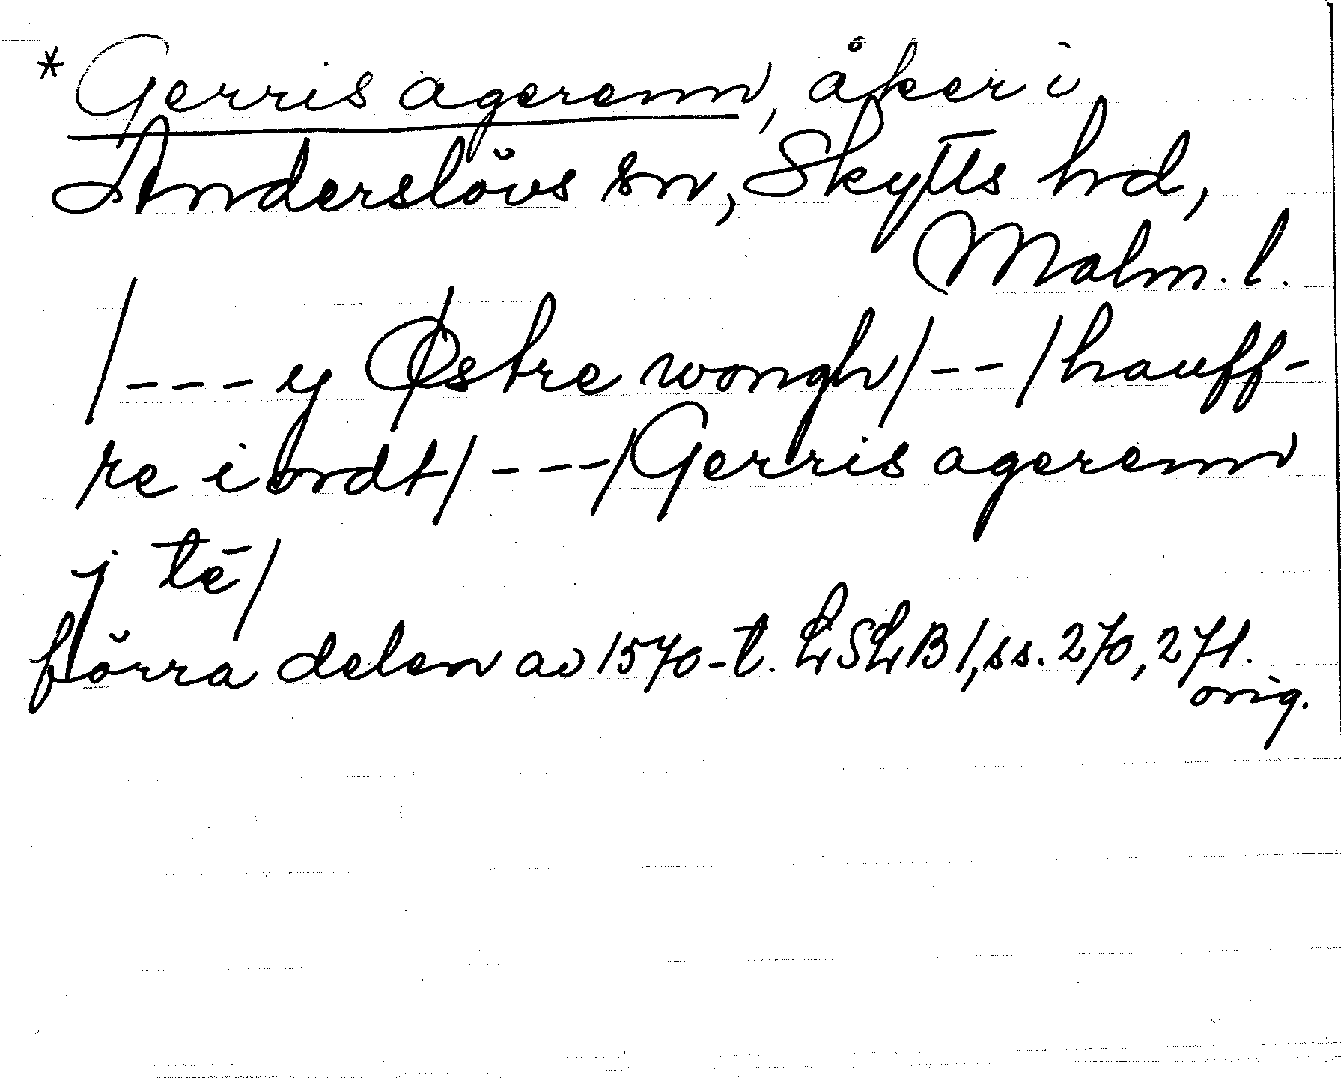 * Gerris agerenn, åker i
Anderslövs sn, Skytts hd,
Malm. l.
/---y Østre wongh/--/hauff-
re iordt/---/Gerris agerenn
j tē/
förra delen av 1570-t. LSLB 1, ss. 270, 271.
orig.